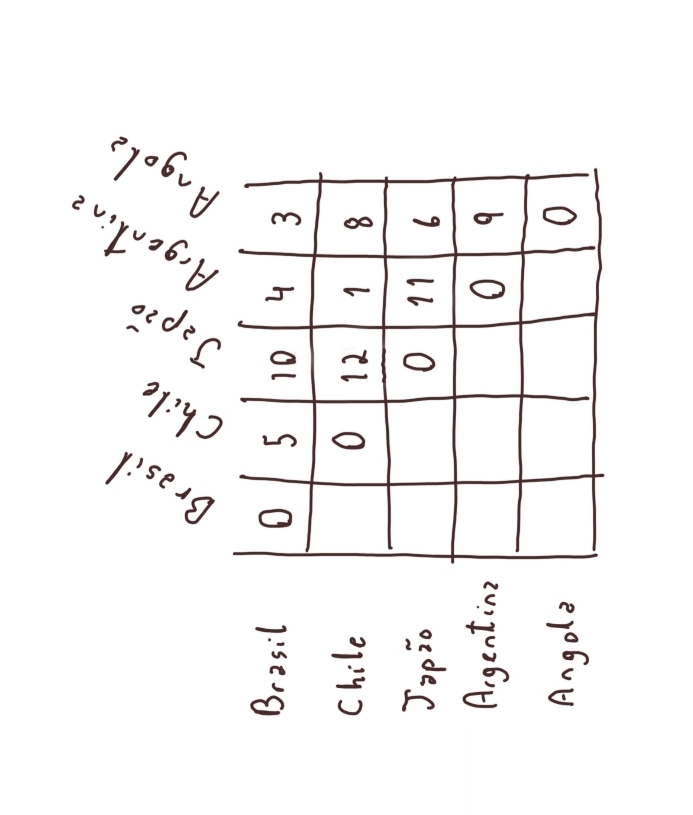 Brasil Chile Japão Argentina Angola
Brasil 0 5 10 4 3
Chile 0 12 1 8
Japão 0 11 6
Argentina 0 9
Angola 0